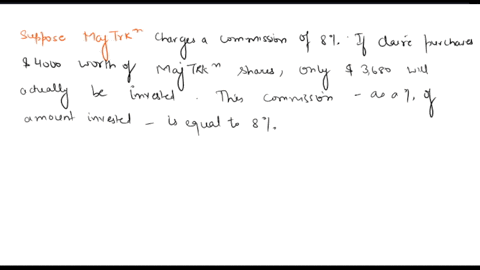 Suppose MajTrkⁿ charges a commission of 8%. If claire purchases
$4000 worth of MajTRKⁿ shares, only $3,680 will
actually be invested. This commission - as a % of
amount invested - is equal to 8%.